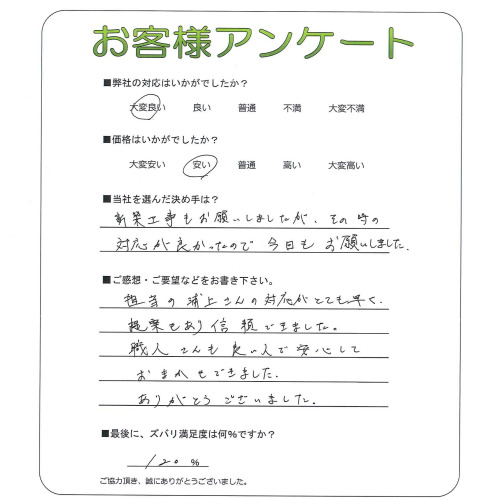 お客様アンケート
■弊社の対応はいかがでしたか？
大変良い 良い 普通 不満 大変不満
■価格はいかがでしたか？
大変安い 安い 普通 高い 大変高い
■当社を選んだ決め手は？
新築工事もお願いしましたが、その時の
対応が良かったので今日もお願いしました.
■ご感想・ご要望などをお書き下さい。
担当の浦上さんの対応がとても早く、
提案もあり信頼できました。
職人さんも良い人で安心して
おまかせできました.
ありがとうございました.
■最後に、ズバリ満足度は何%ですか？
120 %
ご協力頂き、誠にありがとうございました。